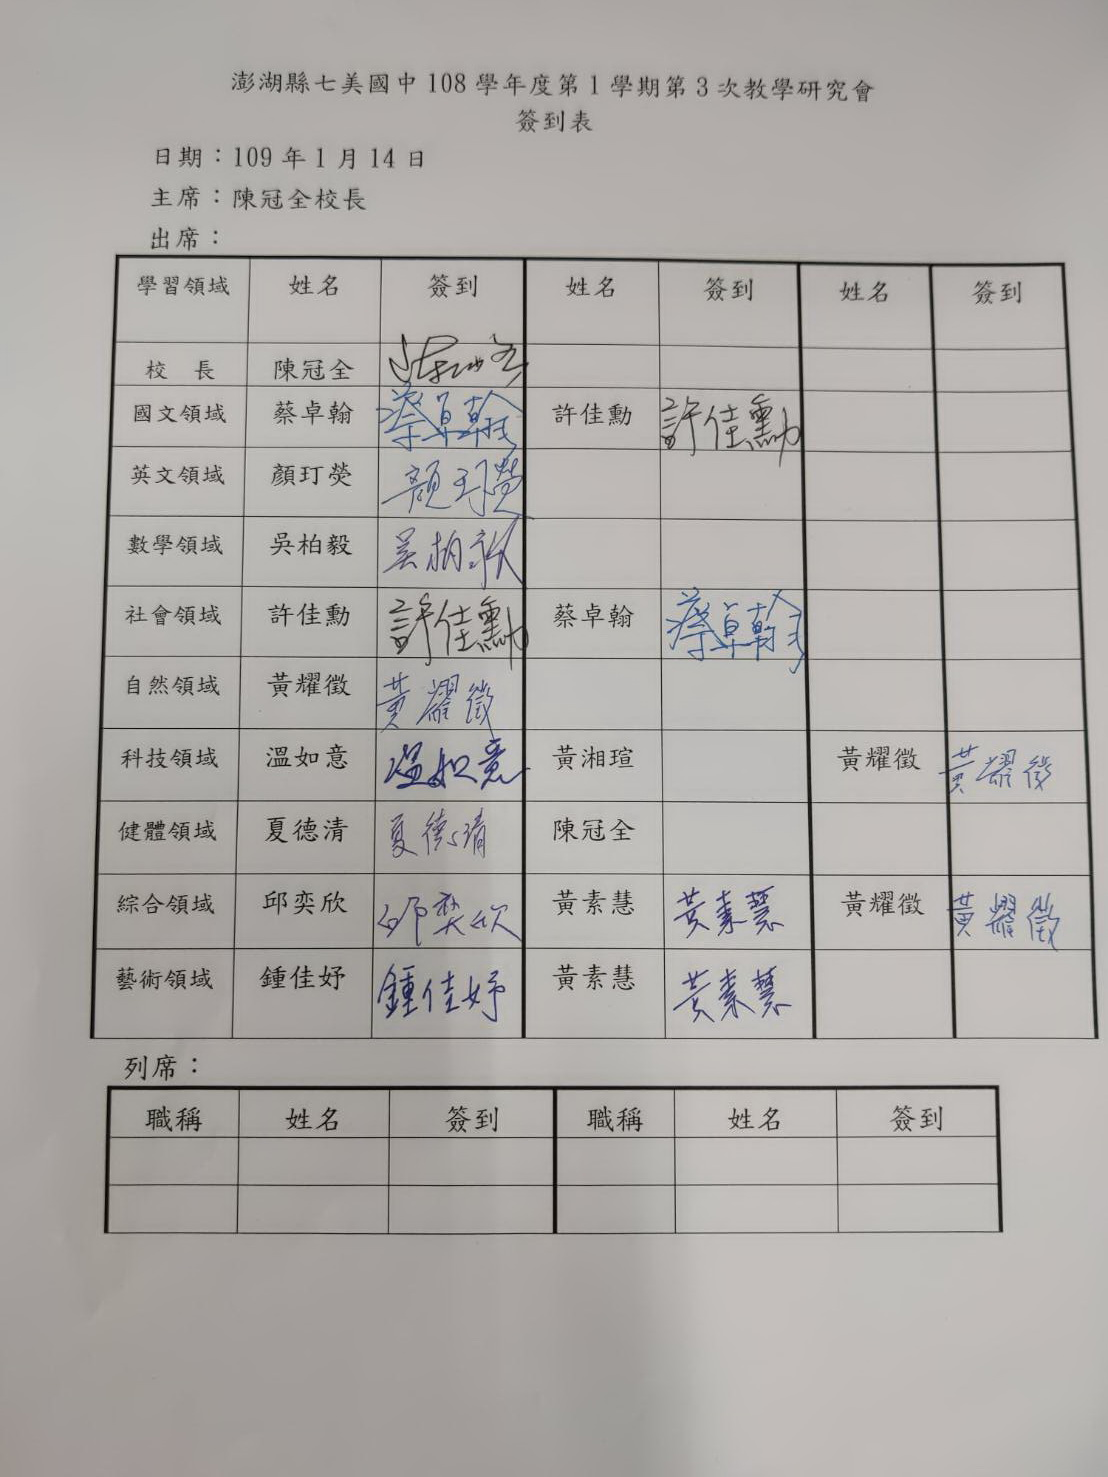 澎湖縣七美國中 108 學年度第 1 學期第 3 次教學研究會
簽到表
日期：109 年 1 月 14 日
主席：陳冠全校長
出席：
學習領域 姓名 簽到 姓名 簽到 姓名 簽到
校 長 陳冠全
國文領域 蔡卓翰 蔡卓翰 許佳勳 許佳勳
英文領域 顏玎熒 顏玎熒
數學領域 吳柏毅 吳柏毅
社會領域 許佳勳 許佳勳 蔡卓翰 蔡卓翰
自然領域 黃耀徵 黃耀徵
科技領域 溫如意 溫如意 黃湘瑄 黃耀徵 黃耀徵
健體領域 夏德清 夏德清 陳冠全
綜合領域 邱奕欣 邱奕欣 黃素慧 黃素慧 黃耀徵 黃耀徵
藝術領域 鍾佳妤 鍾佳妤 黃素慧 黃素慧
列席：
職稱 姓名 簽到 職稱 姓名 簽到